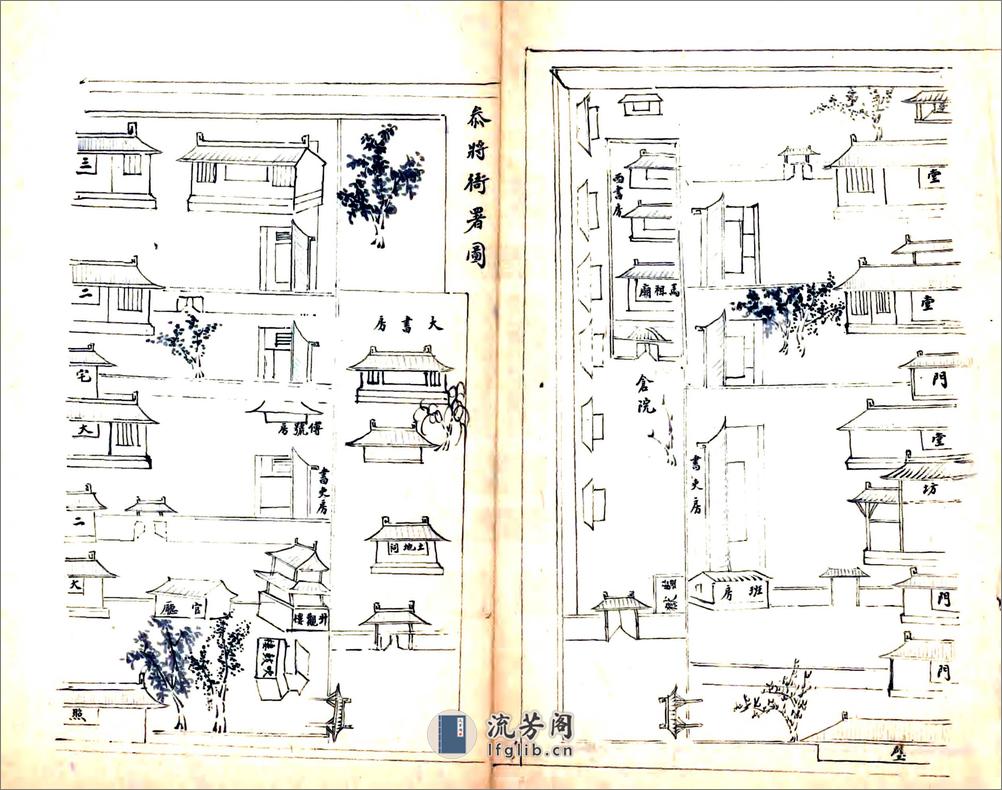 叅將衙署圖
堂
堂
門
堂
坊
門
門
壁
西書房
馬祖廟
倉院
書吏房
班房
大書房
土地祠
傳號房
書吏房
官廳
三
二
宅
大
二
大
照
流芳阁
lfglib.cn